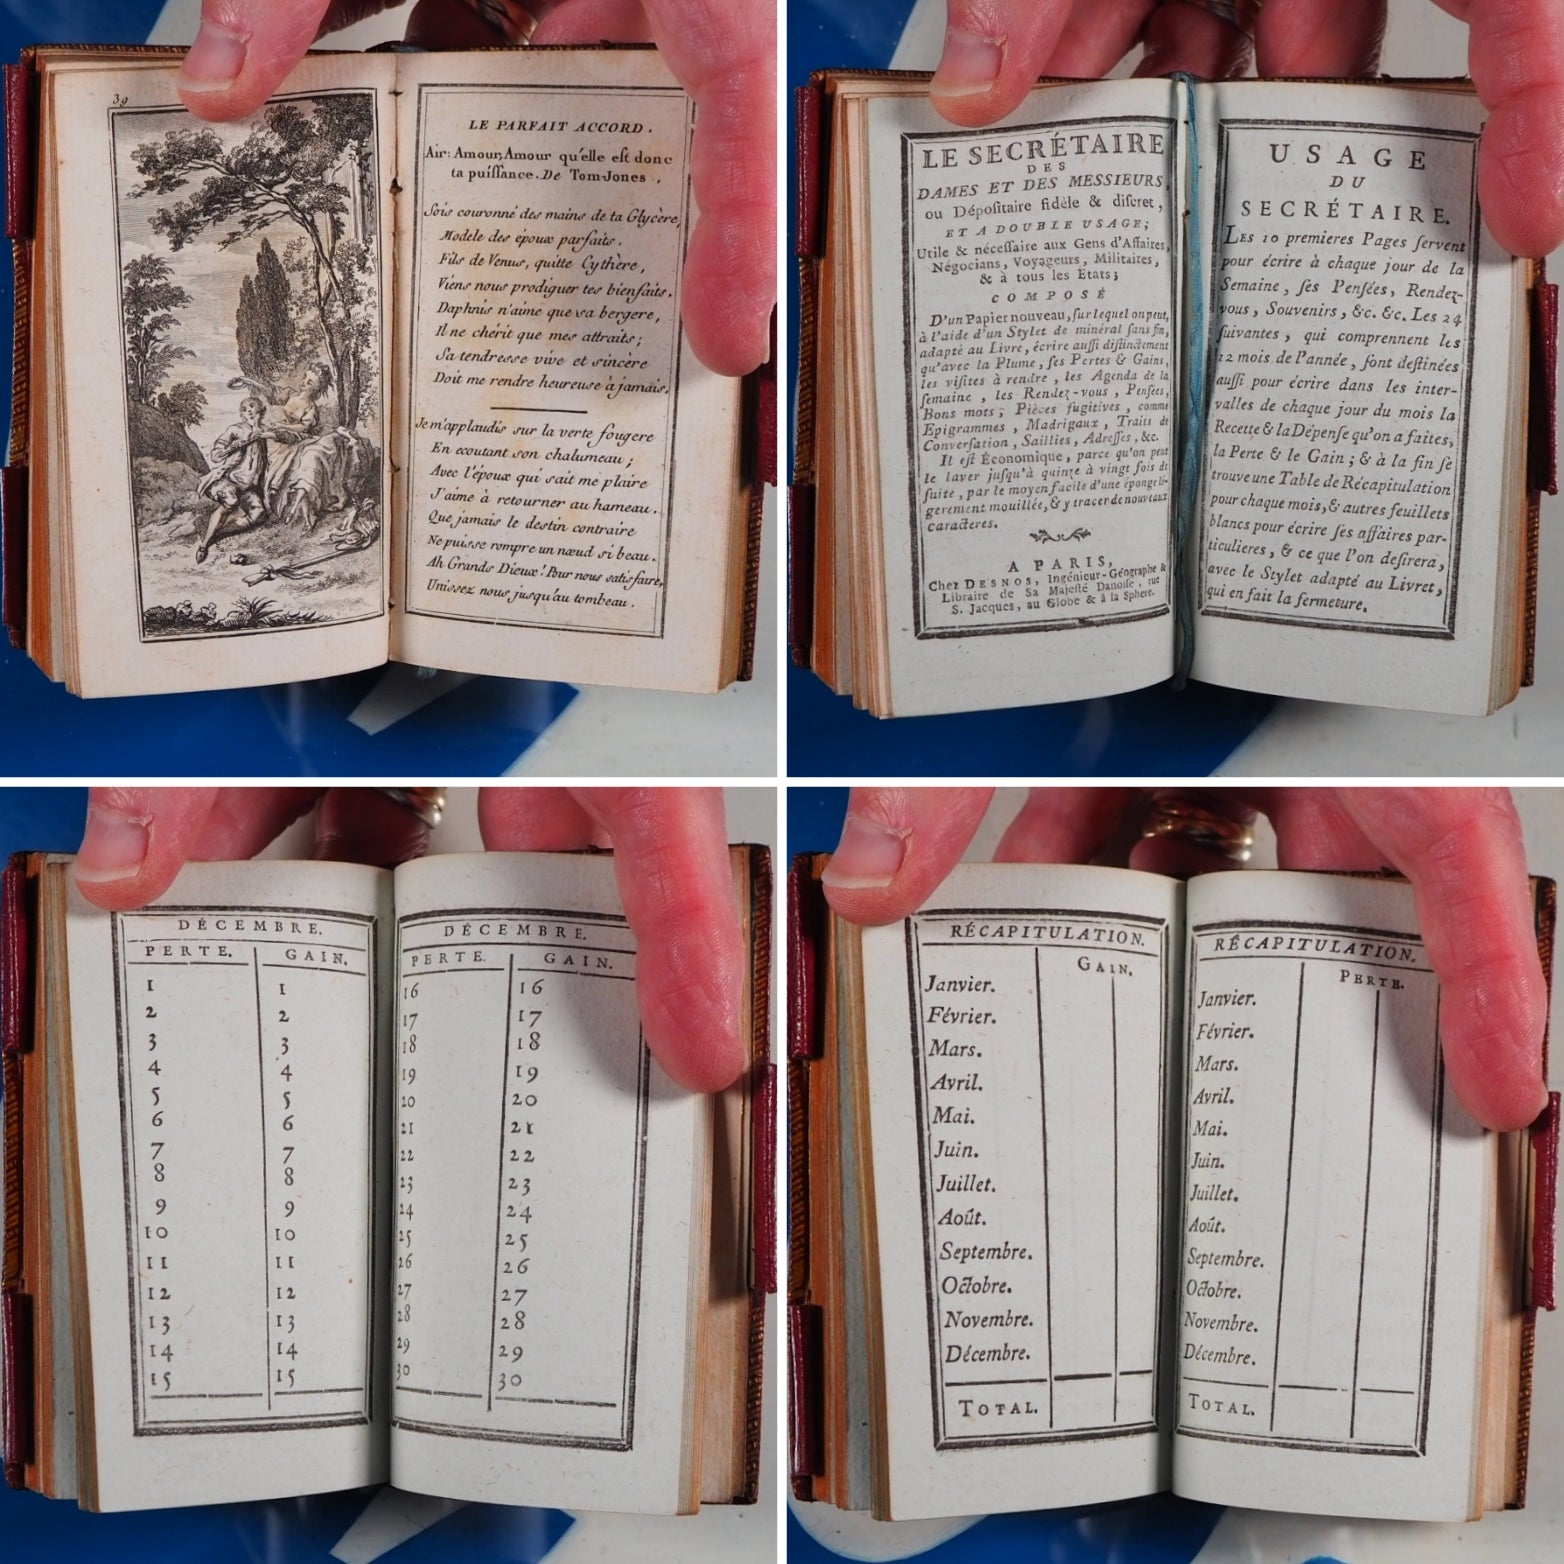 39
LE PARFAIT ACCORD.
Air: Amour, Amour qu'elle est donc
ta puissance. De Tom-Jones.
Sois couronné des mains de ta Glycère,
Modèle des époux parfaits.
Fils de Venus, quitte Cythère,
Viens nous prodiguer tes bienfaits.
Daphnis n'aime que sa bergere,
Il ne chérit que mes attraits;
Sa tendresse vive et sincère
Doit me rendre heureuse à jamais.
Je m'applaudis sur la verte fougere
En ecoutant son chalumeau;
Avec l'époux qui sait me plaire
J'aime à retourner au hameau.
Que jamais le destin contraire
Ne puisse rompre un nœud si beau.
Ah Grands Dieux! Pour nous satisfaire,
Unissez nous jusqu'au tombeau.
LE SECRÉTAIRE
DES
DAMES ET DES MESSIEURS,
ou Dépositaire fidèle & discret,
ET A DOUBLE USAGE;
Utile & nécessaire aux Gens d'Affaires,
Négocians, Voyageurs, Militaires,
& à tous les Etats;
COMPOSÉ
D'un Papier nouveau, sur lequel on peut,
à l'aide d'un Stylet de minéral sans fin,
adapté au Livre, écrire aussi distinctement
qu'avec la Plume, ses Pertes & Gains,
les visites à rendre, les Agenda de la
semaine, les Rendez-vous, Pensées,
Bons mots; Pièces fugitives, comme
Epigrammes, Madrigaux, Traits de
Conversation, Saillies, Adresses, &c.
Il est Économique, parce qu'on peut
le laver jusqu'à quinze à vingt fois de
suite, par le moyen facile d'une éponge lé-
gerement mouillée, & y tracer de nouveaux
caracteres.
A PARIS,
Chez DESNOS, Ingénieur-Géographe &
Libraire de Sa Majesté Danoise, rue
S. Jacques, au Globe & à la Sphere.
USAGE
DU
SECRÉTAIRE.
Les 10 premieres Pages servent
pour écrire à chaque jour de la
Semaine, ses Pensées, Rendez-
vous, Souvenirs, &c. &c. Les 24
suivantes, qui comprennent les
12 mois de l'année, sont destinées
aussi pour écrire dans les inter-
valles de chaque jour du mois la
Recette & la Dépense qu'on a faites,
la Perte & le Gain; & à la fin se
trouve une Table de Récapitulation
pour chaque mois, & autres feuillets
blancs pour écrire ses affaires par-
ticulieres, & ce que l'on desirera,
avec le Stylet adapté au Livret,
qui en fait la fermeture.
DÉCEMBRE.
PERTE. GAIN.
1 1
2 2
3 3
4 4
5 5
6 6
7 7
8 8
9 9
10 10
11 11
12 12
13 13
14 14
15 15
DÉCEMBRE.
PERTE. GAIN.
16 16
17 17
18 18
19 19
20 20
21 21
22 22
23 23
24 24
25 25
26 26
27 27
28 28
29 29
30 30
RÉCAPITULATION.
GAIN.
Janvier.
Février.
Mars.
Avril.
Mai.
Juin.
Juillet.
Août.
Septembre.
Octobre.
Novembre.
Décembre.
TOTAL.
RÉCAPITULATION.
PERTE.
Janvier.
Février.
Mars.
Avril.
Mai.
Juin.
Juillet.
Août.
Septembre.
Octobre.
Novembre.
Décembre.
TOTAL.